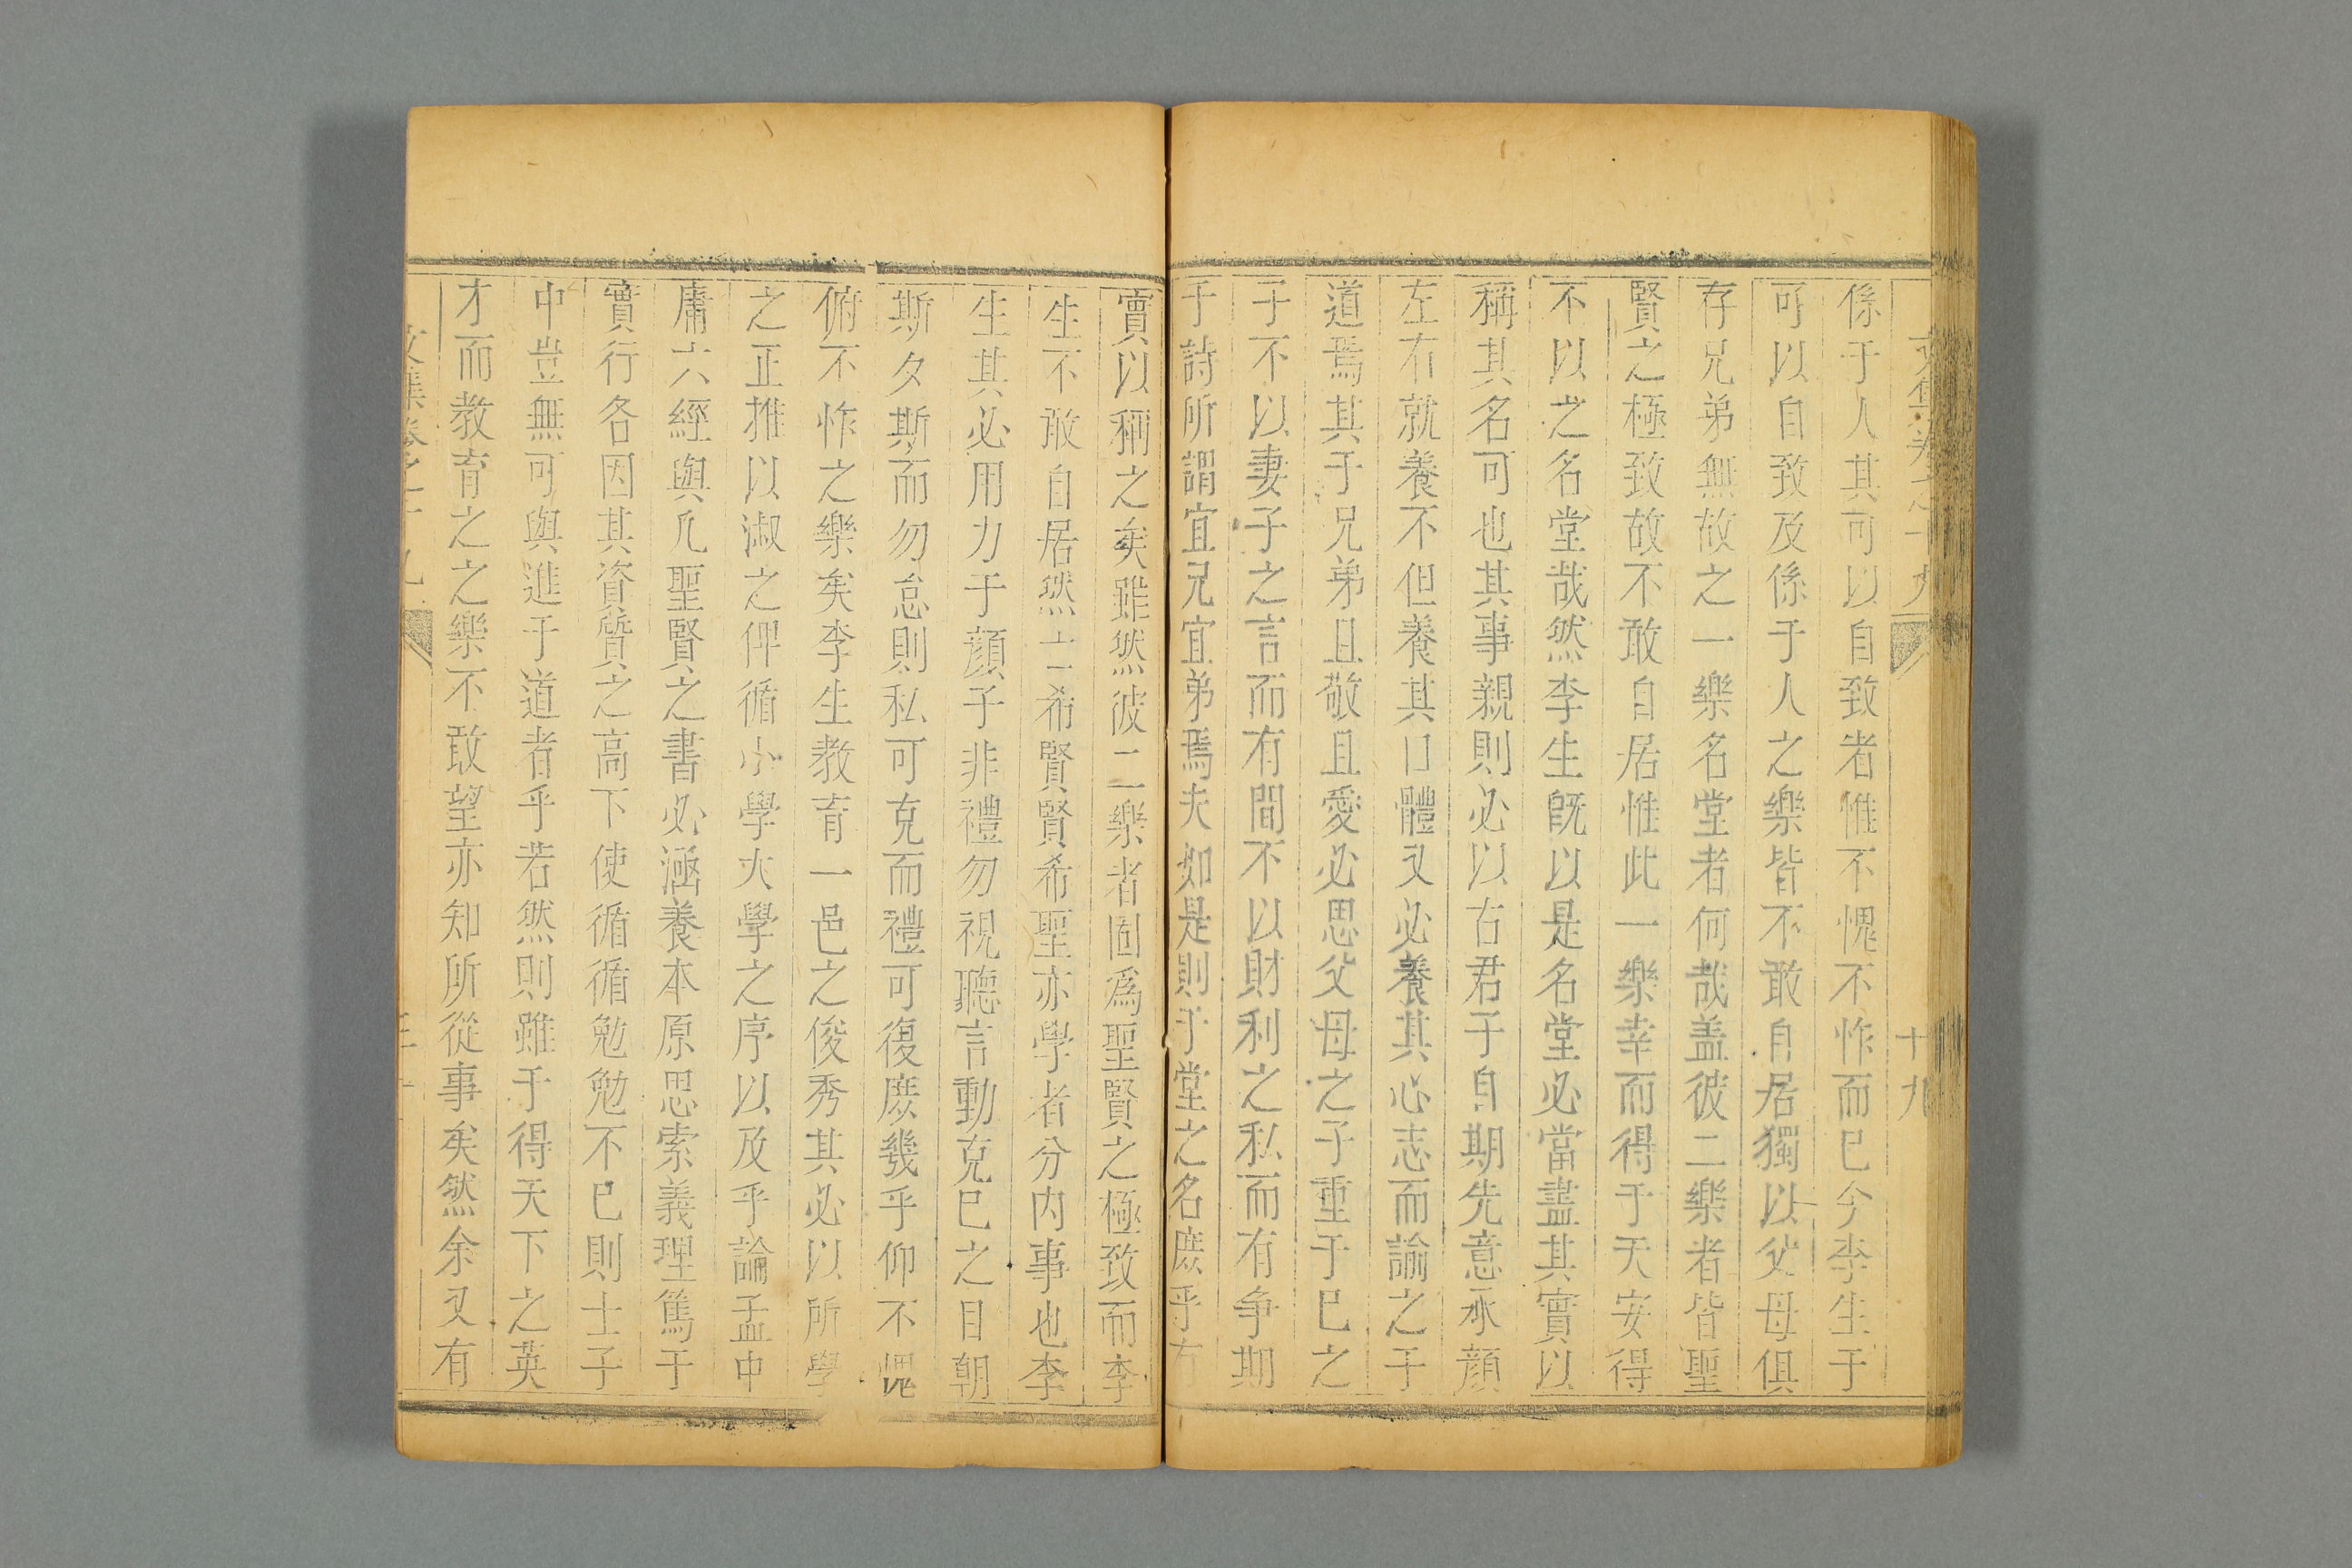 文集卷之十九
十九
係于人其可以自致者惟不愧不怍而已今李生于
可以自致及係于人之樂皆不敢自居獨以父母俱
存兄弟無故之一樂名堂者何哉盖彼二樂者皆聖
賢之極致故不敢自居惟此一樂幸而得于天安得
不以之名堂哉然李生旣以是名堂必當盡其實以
稱其名可也其事親則必以古君子自期先意承顔
左右就養不但養其口體又必養其心志而諭之于
道焉其于兄弟且敬且愛必思父母之子重于已之
子不以妻子之言而有間不以財利之私而有争期
于詩所謂宜兄宜弟焉夫如是則于堂之名庶乎有
實以稱之矣雖然彼二樂者固爲聖賢之極致而李
生不敢自居然士希賢賢希聖亦學者分内事也李
生其必用力于顔子非禮勿視聽言動克已之目朝
斯夕斯而勿怠則私可克而禮可復庶幾乎仰不愧
俯不怍之樂矣李生教育一邑之俊秀其必以所學
之正推以淑之俾循小學大學之序以及乎論孟中
庸六經與凡聖賢之書必涵養本原思索義理篤于
實行各因其資質之高下使循循勉勉不已則士子
中豈無可與進于道者乎若然則雖于得天下之英
才而教育之之樂不敢望亦知所從事矣然余又有
文集卷之十九